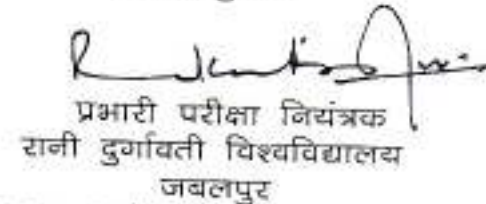 प्रभारी परीक्षा नियंत्रक
रानी दुर्गावती विश्वविद्यालय
जबलपुर